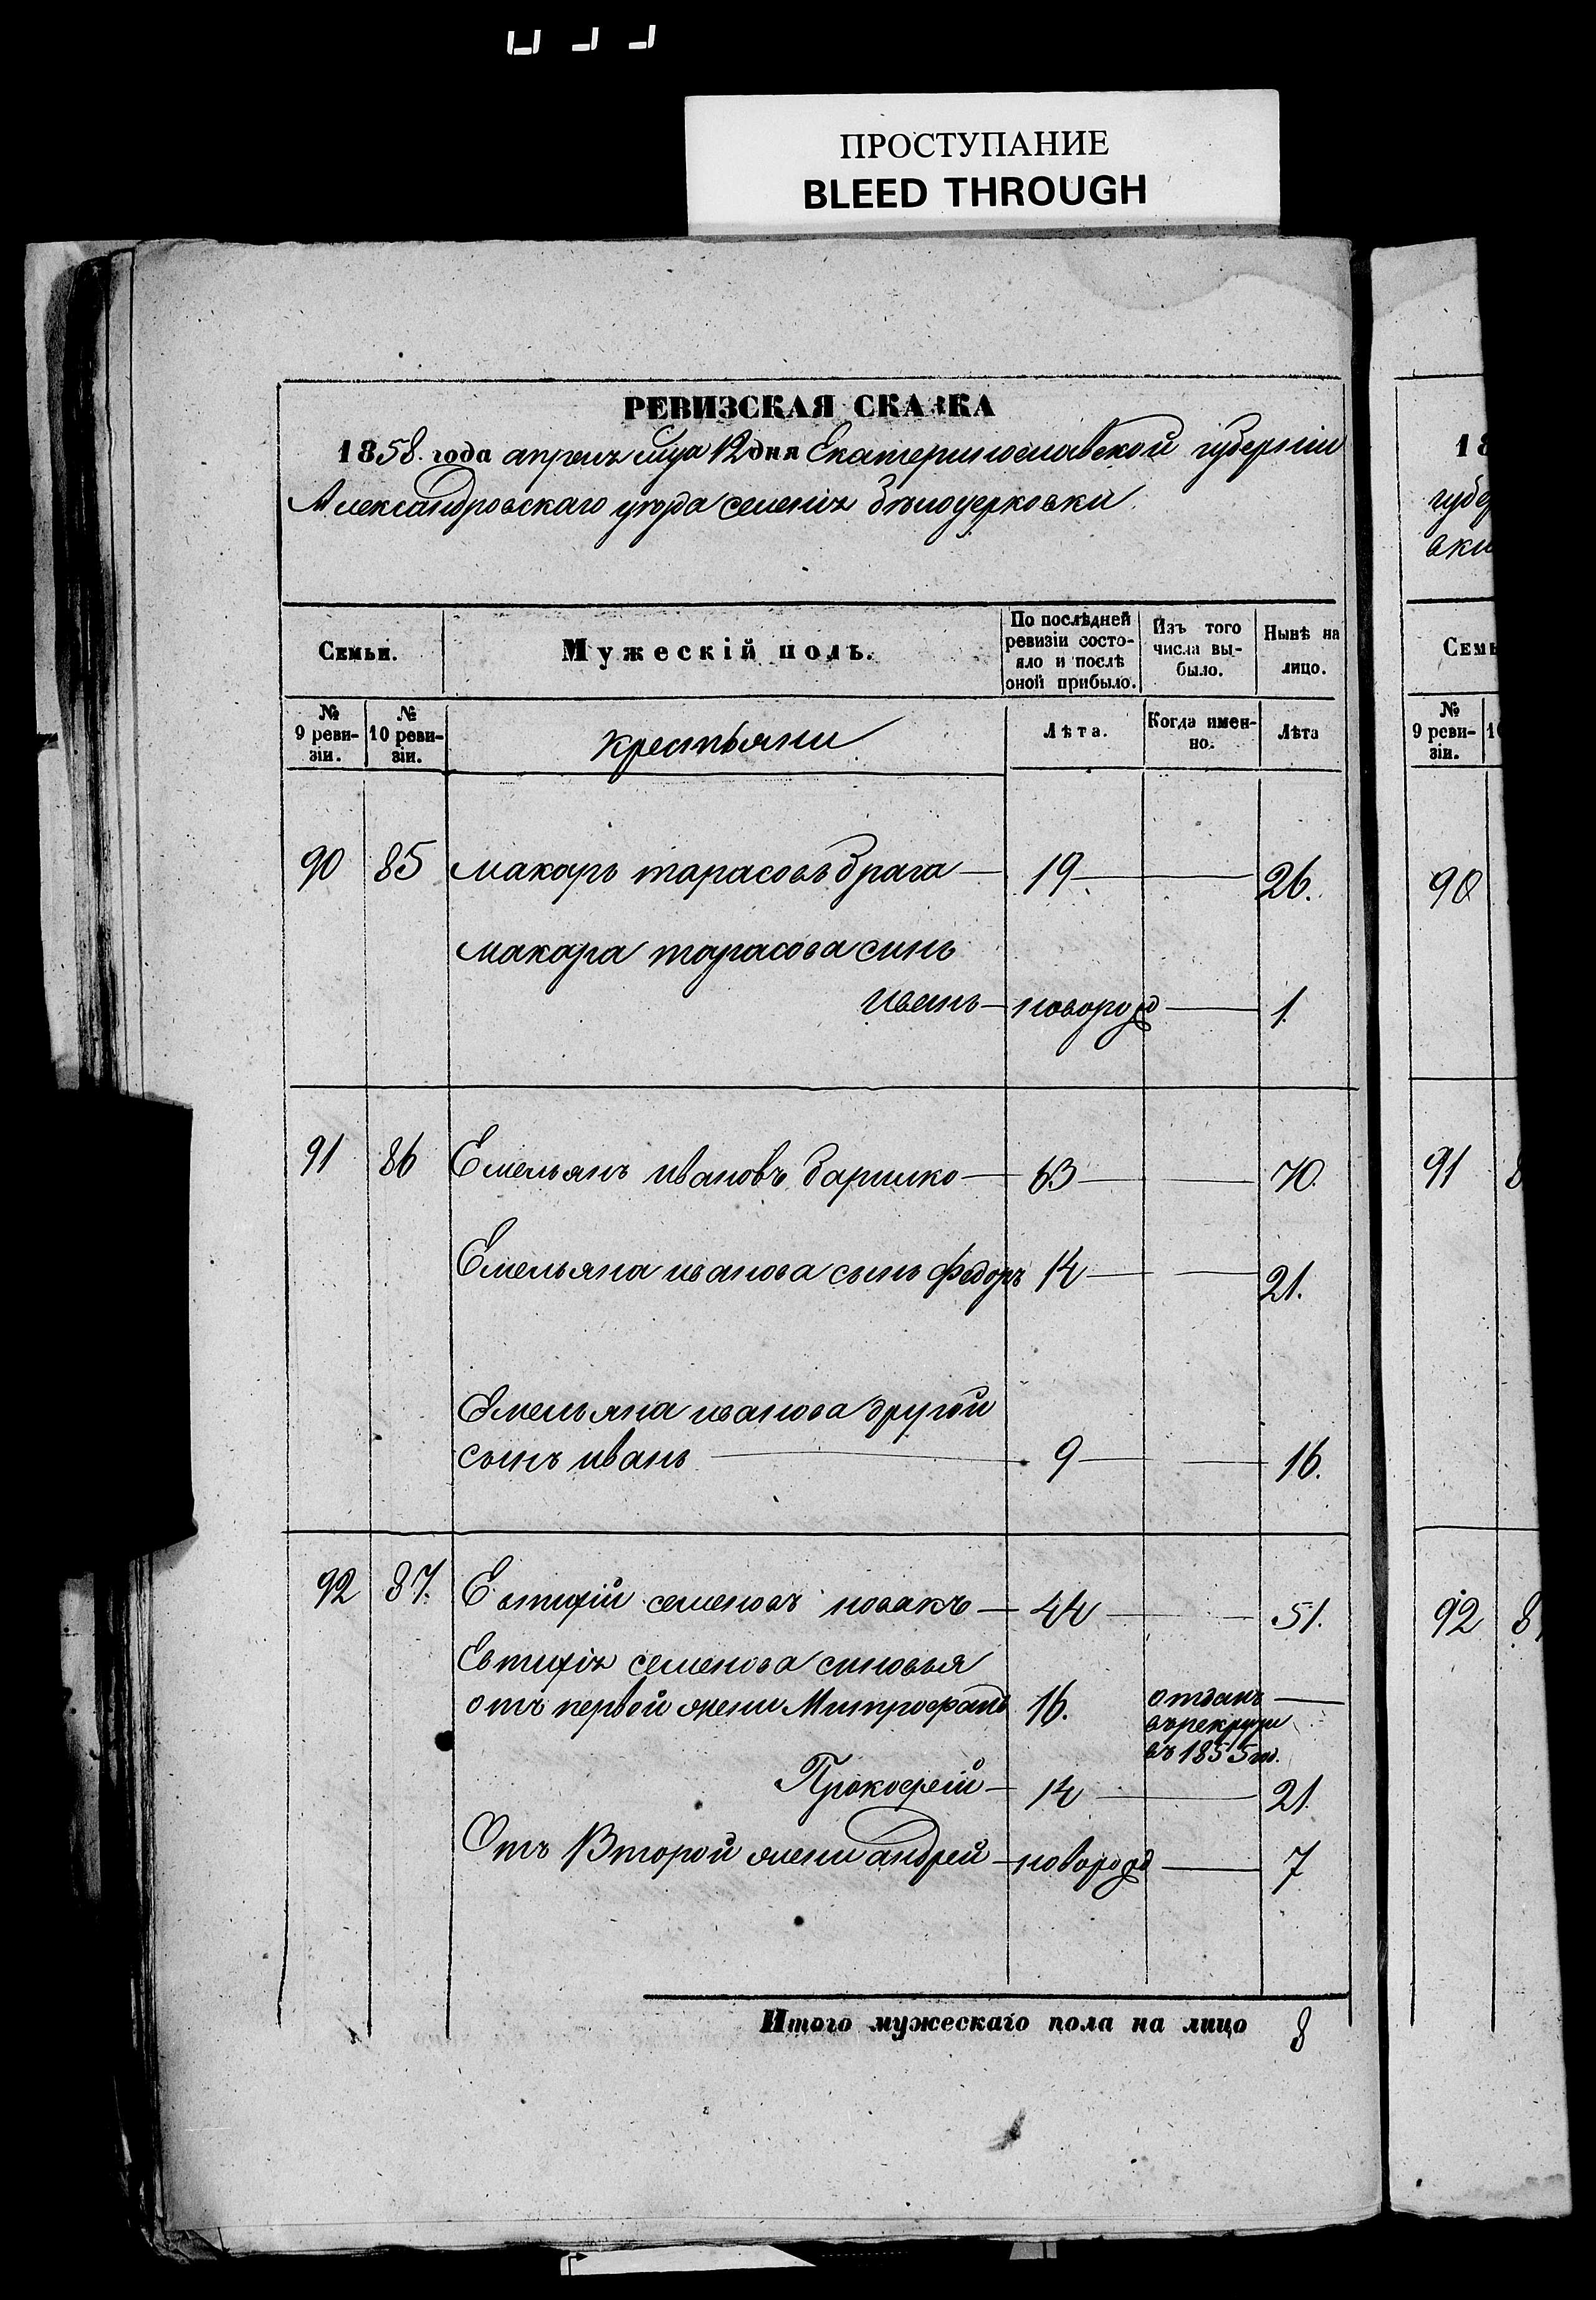 ПРОСТУПАНИЕ
BLEED THROUGH
РЕВИЗСКАЯ СКАЗКА
1858. года апреля мца 12 дня Екатеринославской губернии
Александровскаго уезда селения белоцерковки
Семьи.
Мужескій полъ.
По послѣдней ревизіи состо-
яло и послѣ
оной прибыло.
Изъ того
числа вы-
было.
Нынѣ на
лицо.
№
9 реви-
зіи.
№
10 реви-
зіи.
крестьяни
Лѣта.
Когда имен-
но.
Лѣта
90 85 макаръ тарасовъ брага — 19 — 26.
макара тарасова синъ
иванъ — новорожд — 1.
91 86 Емельянъ ивановъ — 63 — 70.
Емельяна иванова сынъ федоръ 14 — 21.
Емельяна иванова другой
сынъ иванъ — 9 — 16.
92 87. Евтифій семеновъ новакъ — 44 — 51.
Евтифія семенова синовья
отъ первой жени Митрофанъ 16. отданъ —
въ рекрути
въ 1855 го.
Прокофей — 14 — 21.
Отъ Второй жени андрей — новорожд — 7
Итого мужескаго пола на лицо 8
18
губер
вки
Семь
№
9 реви-
зіи.
10
90
91 8
92 8